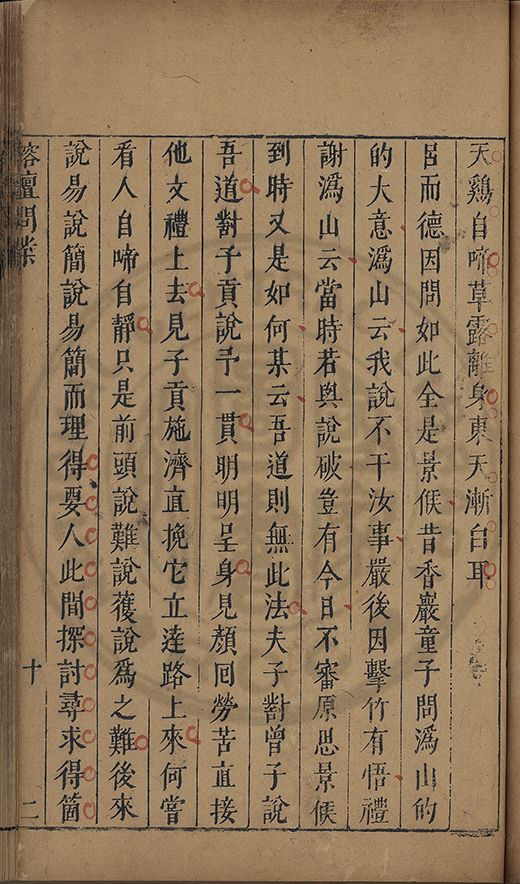 天鷄自啼草露離身東天漸白耳
呂而德因問如此全是景候昔香嚴童子問潙山的
的大意潙山云我說不干汝事嚴後因擊竹有悟禮
謝潙山云當時若與說破豈有今日不審原思景候
到時又是如何某云吾道則無此法夫子對曾子說
吾道對子貢說予一貫明明呈身見顏回勞苦直接
他文禮上去見子貢施濟直挽它立達路上來何嘗
看人自啼自靜只是前頭說難說獲說為之難後來
說易說簡說易簡而理得要人此間探討尋求得箇
榕壇問業
十
二